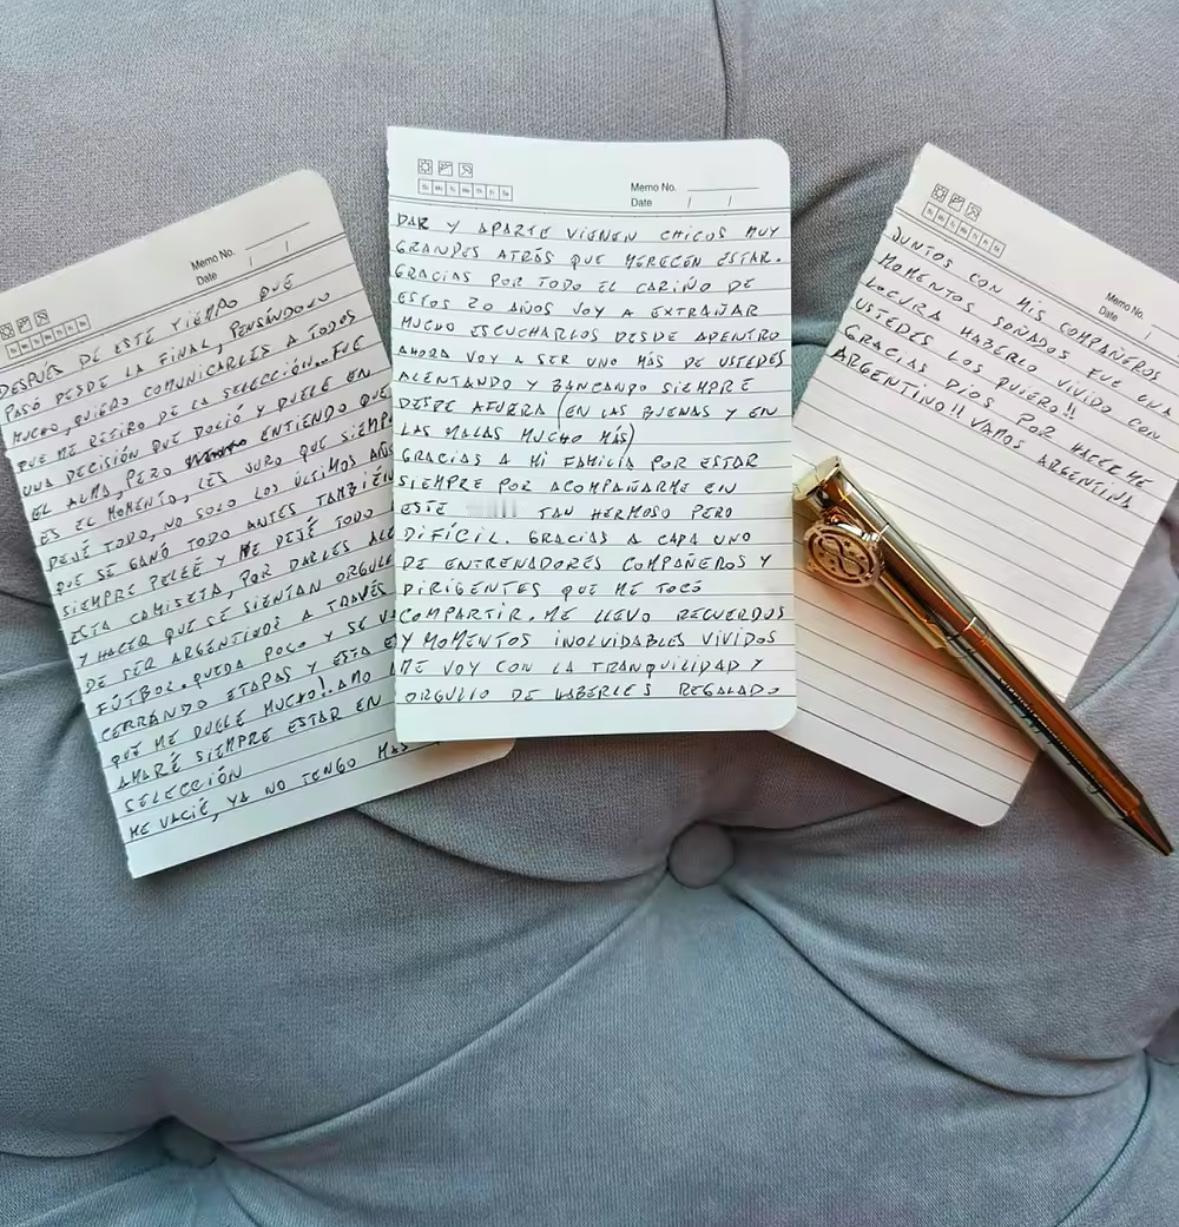 Memo No.
Date / /
DESPUÉS DE ESTE TIEMPO QUE
PASÓ DESDE LA FINAL, PENSÁNDOLO
MUCHO, QUIERO COMUNICARLES A TODOS
QUE ME RETIRO DE LA SELECCIÓN... FUE
UNA DECISIÓN QUE DOLIÓ Y DUELE EN
EL ALMA, PERO ENTIENDO QUE
ES EL MOMENTO, LES JURO QUE SIEMP
DEJÉ TODO, NO SOLO LOS ÚLTIMOS AÑ
QUE SE GANÓ TODO ANTES TAMBIÉN
SIEMPRE PELEÉ Y ME DEJÉ TODO
ESTA CAMISETA, POR DARLES
Y HACER QUE SE SIENTAN ORGULL
DE SER ARGENTINOS A TRAVÉS
FÚTBOL. QUEDA POCO Y SE V
CERRANDO ETAPAS Y ESTA E
QUE ME DUELE MUCHO! AMO
AMARÉ SIEMPRE ESTAR EN
SELECCIÓN
ME VACIÉ, YA NO TENGO MAS
Memo No.
Date / /
DAR Y APARTE VIENEN CHICOS MUY
GRANDES ATRÁS QUE MERECEN ESTAR.
GRACIAS POR TODO EL CARIÑO DE
ESTOS 20 AÑOS VOY A EXTRAÑAR
MUCHO ESCUCHARLOS DESDE ADENTRO
AHORA VOY A SER UNO MÁS DE USTEDES
ALENTANDO Y BANCANDO SIEMPRE
DESDE AFUERA (EN LAS BUENAS Y EN
LAS MALAS MUCHO MÁS)
GRACIAS A MI FAMILIA POR ESTAR
SIEMPRE POR ACOMPAÑARME EN
ESTE TAN HERMOSO PERO
DIFÍCIL. GRACIAS A CADA UNO
DE ENTRENADORES COMPAÑEROS Y
DIRIGENTES QUE ME TOCÓ
COMPARTIR. ME LLEVO RECUERDOS
Y MOMENTOS INOLVIDABLES VIVIDOS
ME VOY CON LA TRANQUILIDAD Y
ORGULLO DE HABERLES REGALADO
Memo No.
Date /
JUNTOS CON MIS COMPAÑEROS
MOMENTOS SOÑADOS FUE UNA
LOCURA HABERLO VIVIDO CON
USTEDES LOS QUIERO!!
GRACIAS DIOS POR HACERME
ARGENTINO!! VAMOS ARGENTINA